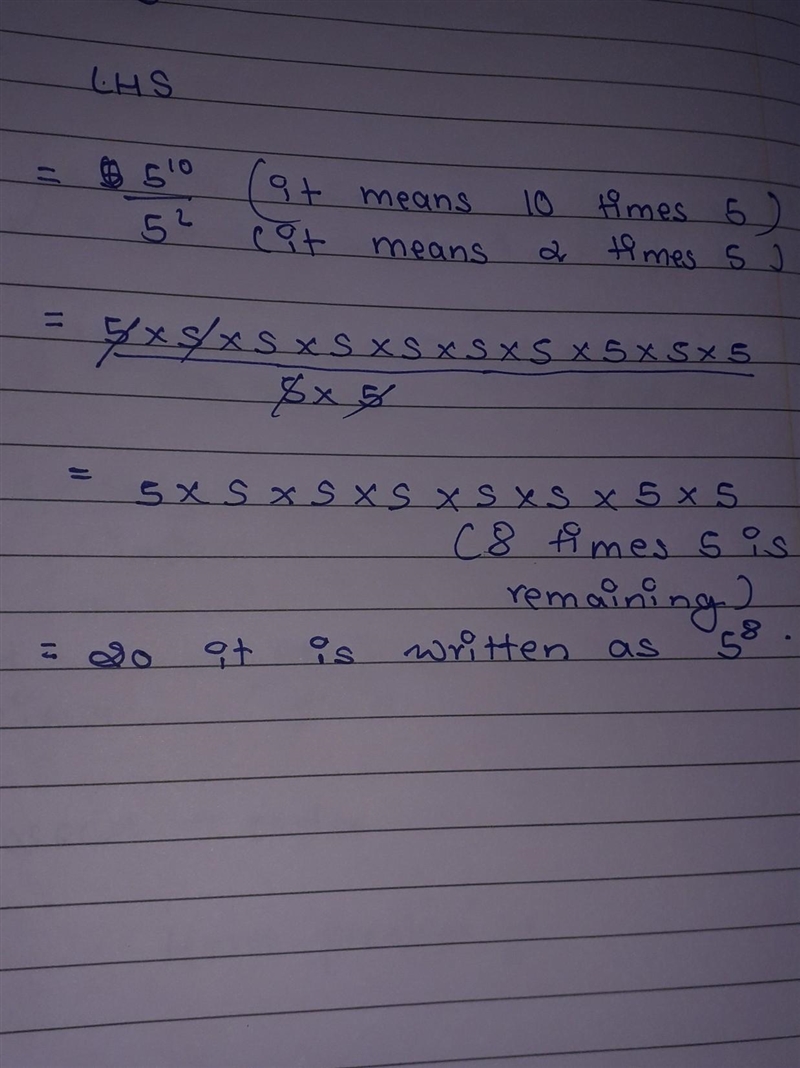 LHS
= 5¹⁰ (it means 10 times 5)
5² (it means 2 times 5)
= 5 × 5 × 5 × 5 × 5 × 5 × 5 × 5 × 5 × 5
5 × 5
= 5 × 5 × 5 × 5 × 5 × 5 × 5 × 5
(8 times 5 is
remaining)
= so it is written as 5⁸.